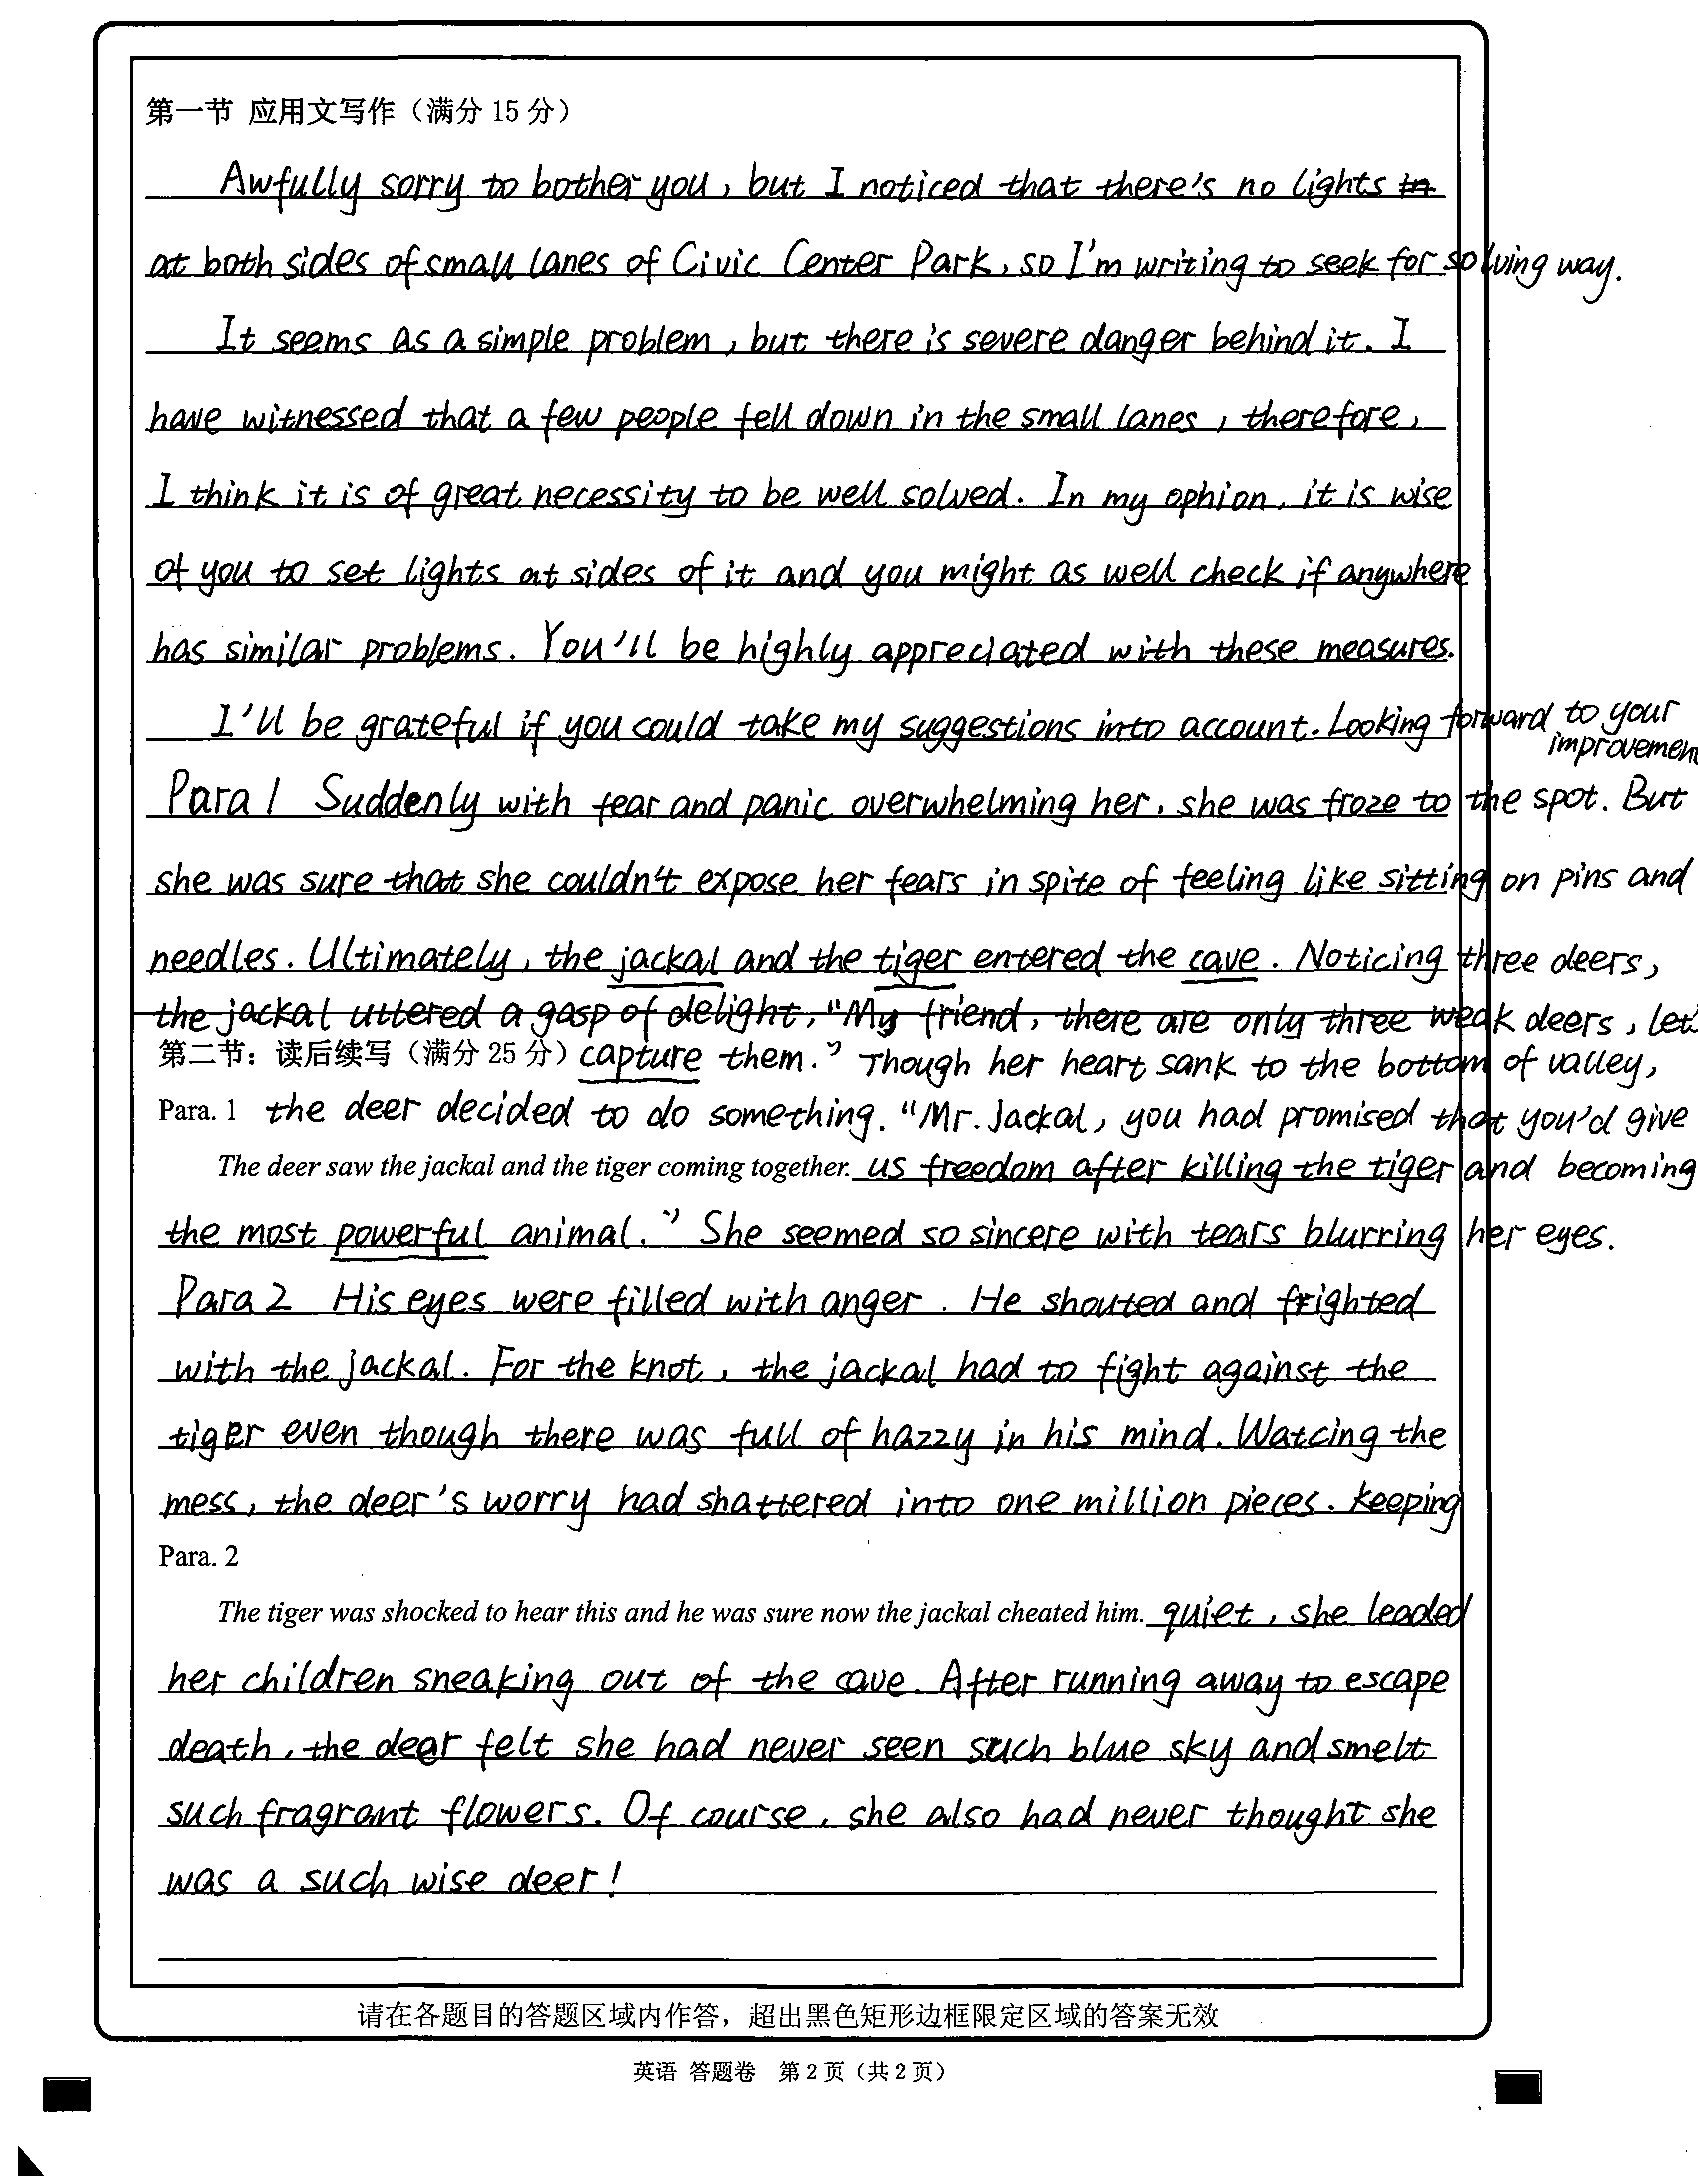 第一节 应用文写作（满分 15 分）
Awfully sorry to bother you, but I noticed that there's no lights in
at both sides of small lanes of Civic Center Park, so I'm writing to seek for solving way.
It seems as a simple problem, but there is severe danger behind it. I
have witnessed that a few people fell down in the small lanes, therefore,
I think it is of great necessity to be well solved. In my ophion, it is wise
of you to set lights at sides of it and you might as well check if anywhere
has similar problems. You'll be highly appreciated with these measures.
I'll be grateful if you could take my suggestions into account. Looking forward to your
improvement
Para 1 Suddenly with fear and panic overwhelming her, she was froze to the spot. But
she was sure that she couldn't expose her fears in spite of feeling like sitting on pins and
needles. Ultimately, the jackal and the tiger entered the cave. Noticing three deers,
the jackal uttered a gasp of delight, "My friend, there are only three weak deers, let's
第二节：读后续写（满分 25 分）capture them." Though her heart sank to the bottom of valley,
Para. 1 the deer decided to do something. "Mr. Jackal, you had promised that you'd give
The deer saw the jackal and the tiger coming together. us freedom after killing the tiger and becoming
the most powerful animal." She seemed so sincere with tears blurring her eyes.
Para 2 His eyes were filled with anger. He shouted and frighted
with the jackal. For the knot, the jackal had to fight against the
tiger even though there was full of hazzy in his mind. Watcing the
mess, the deer's worry had shattered into one million pieces. Keeping
Para. 2
The tiger was shocked to hear this and he was sure now the jackal cheated him. quiet, she leaded
her children sneaking out of the cave. After running away to escape
death, the deer felt she had never seen such blue sky and smelt
such fragrant flowers. Of course, she also had never thought she
was a such wise deer!
请在各题目的答题区域内作答，超出黑色矩形边框限定区域的答案无效
英语 答题卷 第 2 页（共 2 页）